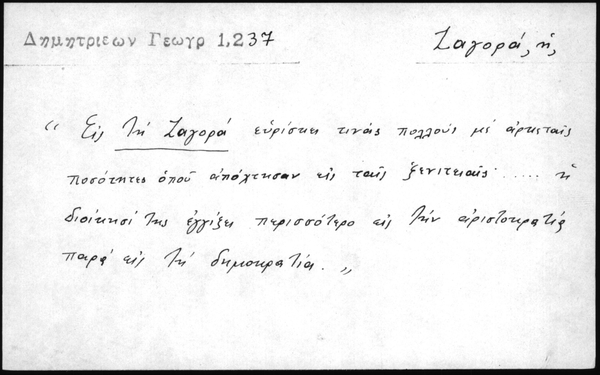 Δημητριεων Γεωγρ 1,237
Ζαγορά, ἡ
“ Εἰς τὴ Ζαγορά εὑρίσκει τινάς πολλούς μέ ἀρκεταῖς
ποσότητες ὁποῦ ἀπόχτησαν εἰς ταῖς ξενιτειαῖς ..... ἡ
διοίκησί της ἐγγίζει περισσότερο εἰς τήν ἀριστοκρατία
παρά εἰς τὴ δημοκρατία. „